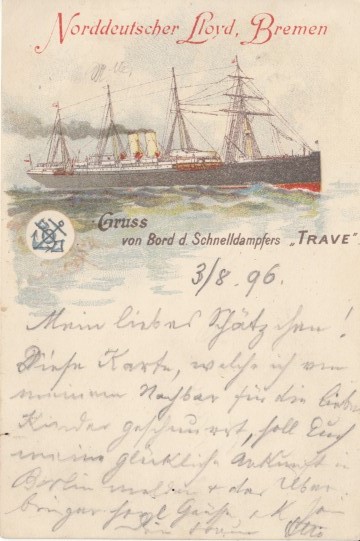 Norddeutscher Lloyd, Bremen
Gruss
von Bord d. Schnelldampfers „TRAVE"
3/8. 96.
Mein liebes Schätzchen!
Diese Karte, welche ich von
meinem Nachbar für die liebe
Kinder, soll Euch
meine glückliche Ankunft in
Berlin melden & der Über-
bringer sein
Dein Otto